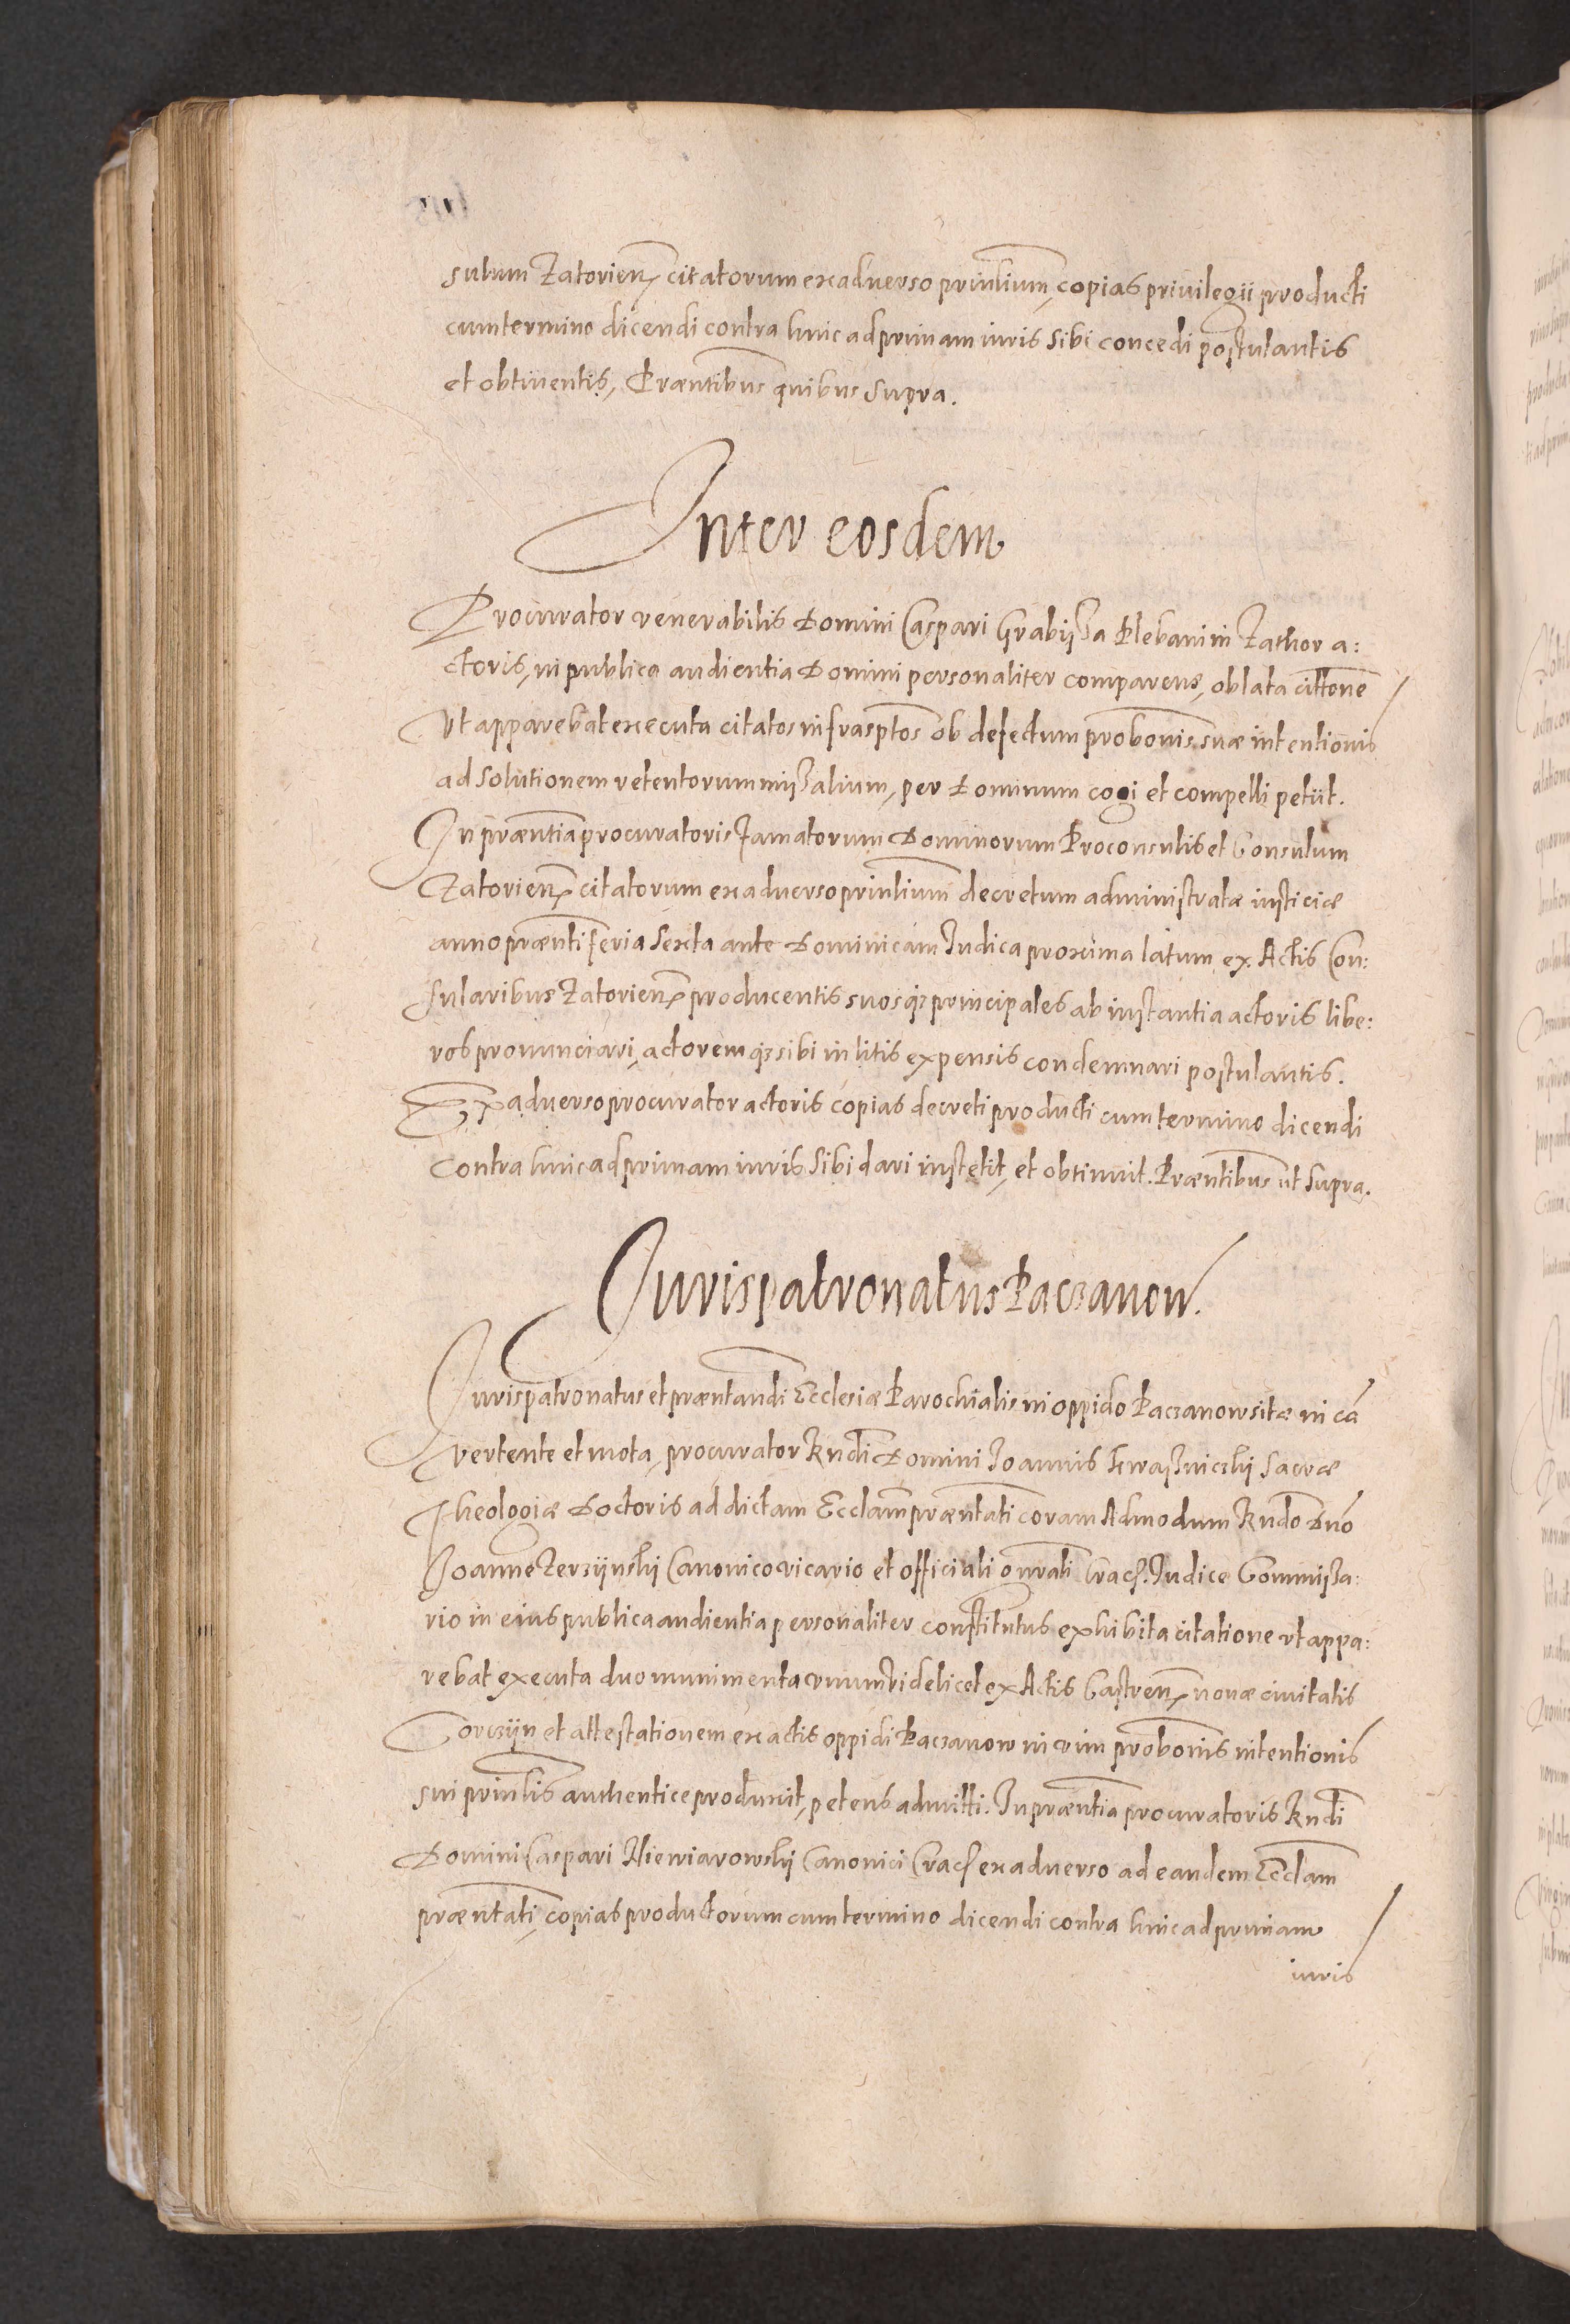 sulum Zatorien citatorum ex adverso prinlium, copias privilegii producti
cum termino dicendi contra hinc ad primam iuris sibi concedi postulantis
et obtinentis, Præntibus quibus supra.
Inter eosdem
Procurator venerabilis Domini Caspari Grabyßa Plebani in Zathor a:
ctoris, in publica audientia Domini personaliter comparens, oblata cittone
ut apparebat executa citatos infrasptos ob defectum probonis suæ intentionis
ad solutionem retentorum mißalium, per Dominum cogi et compelli petiit.
In præntia procuratoris famatorum Dominorum Proconsulis et Consulum
Zatorien citatorum ex adverso prinlium decretum administratæ iusticiæ
anno prænti feria sexta ante Dominicam Iudica proxima latum ex Actis Con:
sularibus Zatorien producentis suosq3 principales ab instantia actoris libe:
ros pronunciari, actoremq3 sibi in litis expensis condemnari postulantis.
Ex adverso procurator actoris copias decreti producti cum termino dicendi
contra hinc ad primam iuris sibi dari institit, et obtinuit. Præntibus ut supra.
Iurispatronatus Paczanow.
Iurispatronatus et præntandi Ecclesiæ Parochialis in oppido Paczanow sitæ in cã
vertente et mota, procurator Rndi Domini Joannis Kwaßniczky Sacræ
Theologiæ Doctoris ad dictam Ecclam præntati coram Admodum Rndo Dno
Joanne Zerzynsky Canonico vicario et officiali gnrali Crac. Iudice Commißa:
rio in eius publica audientia personaliter constitutus exhibita citatione ut appa:
rebat executa duo munimenta unum videlicet ex Actis Castren novæ civitatis
Corczyn et attestationem ex actis oppidi Paczanow in vim probonis intentionis
sui prinlis authentice produxit, petens admitti. In præntia procuratoris Rndi
Domini Caspari Niewiarowsky Canonici Crac ex adverso ad eandem Ecclam
præntati, copias productorum cum termino dicendi contra hinc ad primam
iuris